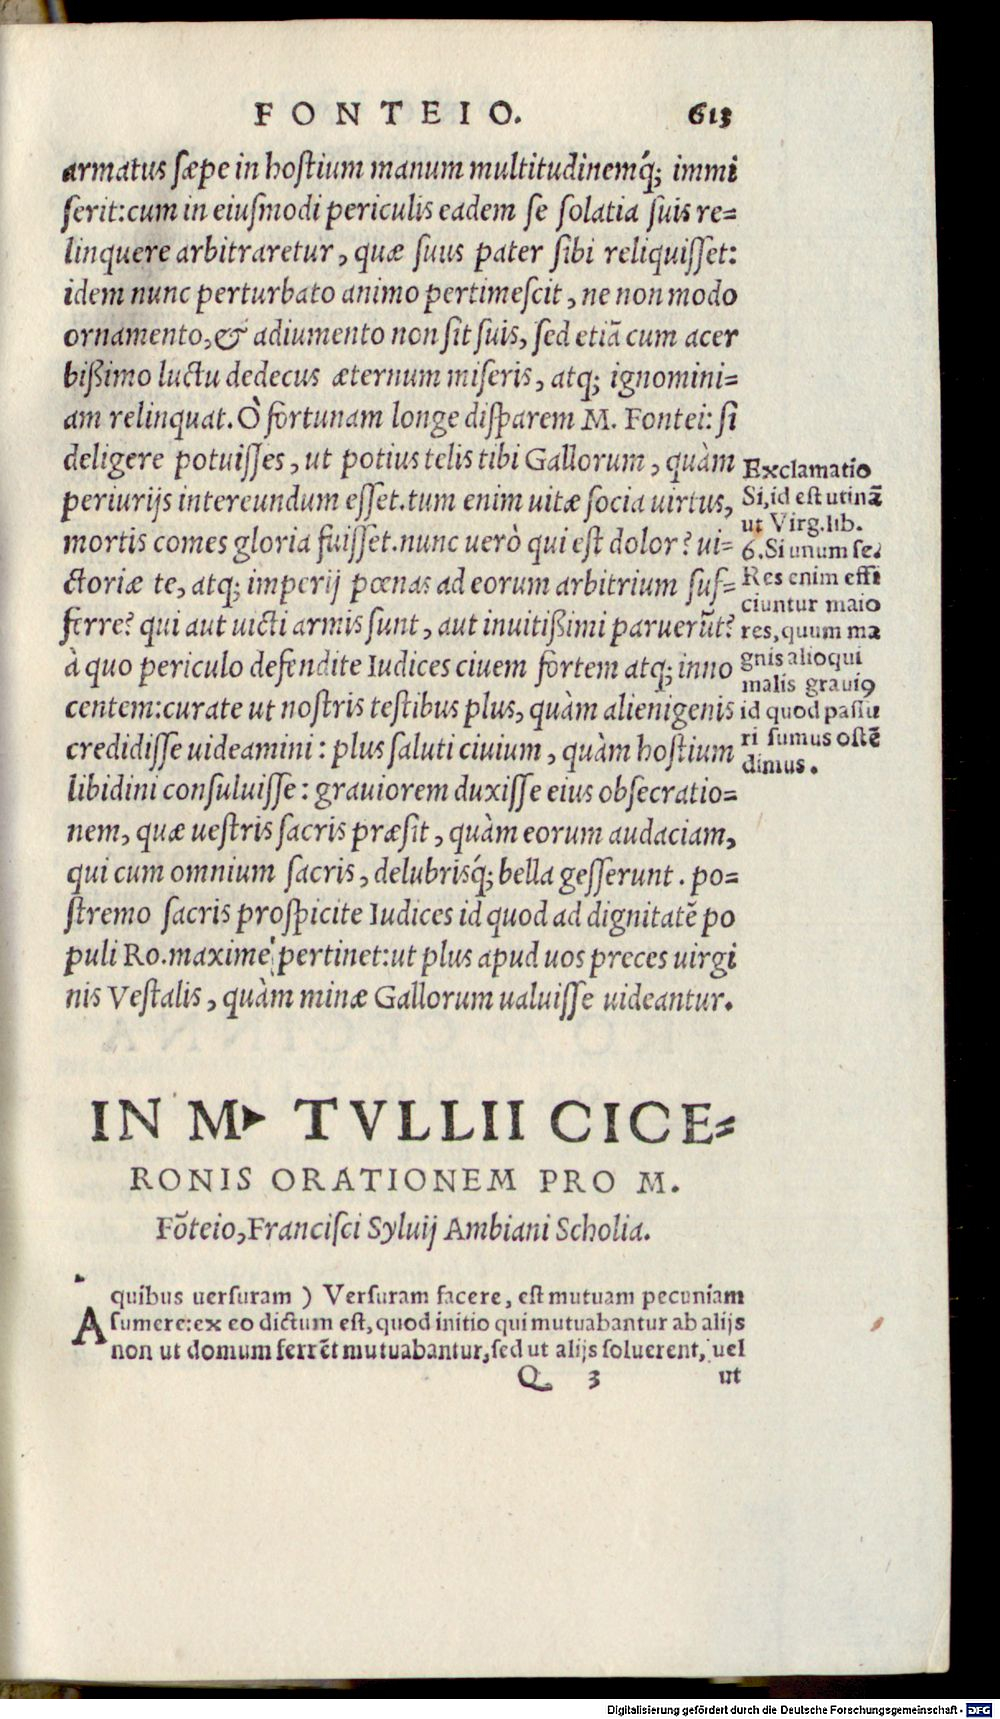 FONTEIO. 613
armatus sæpe in hostium manum multitudinemq́; immi
serit: cum in eiusmodi periculis eadem se solatia suis re=
linquere arbitraretur, quæ suus pater sibi reliquisset:
idem nunc perturbato animo pertimescit, ne non modo
ornamento, & adiumento non sit suis, sed etiã cum acer
bißimo luctu dedecus æternum miseris, atq; ignomini=
am relinquat. Ò fortunam longe disparem M. Fontei: si
deligere potuisses, ut potius telis tibi Gallorum, quàm
periurijs intereundum esset. tum enim uitæ socia uirtus,
mortis comes gloria fuisset. nunc uerò qui est dolor? ui=
ctoriæ te, atq; imperij pœnas ad eorum arbitrium suf=
ferre? qui aut uicti armis sunt, aut inuitißimi paruerũt?
à quo periculo defendite Iudices ciuem fortem atq; inno
centem: curate ut nostris testibus plus, quàm alienigenis
credidisse uideamini: plus saluti ciuium, quàm hostium
libidini consuluisse: grauiorem duxisse eius obsecratio=
nem, quæ uestris sacris præsit, quàm eorum audaciam,
qui cum omnium sacris, delubrisq́; bella gesserunt. po=
stremo sacris prospicite Iudices id quod ad dignitatẽ po
puli Ro. maximè pertinet: ut plus apud uos preces uirgi
nis Vestalis, quàm minæ Gallorum ualuisse uideantur.
Exclamatio
Si, id est utinã
ut Virg. lib.
6. Si unum se.
Res enim effi
ciuntur maio
res, quum ma
gnis alioqui
malis grauiꝰ
id quod passu
ri sumus ostẽ
dimus.
IN M. TVLLII CICE=
RONIS ORATIONEM PRO M.
Fõteio, Francisci Syluij Ambiani Scholia.
A quibus uersuram ) Versuram facere, est mutuam pecuniam
sumere: ex eo dictum est, quod initio qui mutuabantur ab alijs
non ut domum ferrẽt mutuabantur, sed ut alijs soluerent, uel
Q 3 ut
Digitalisierung gefördert durch die Deutsche Forschungsgemeinschaft - DFG